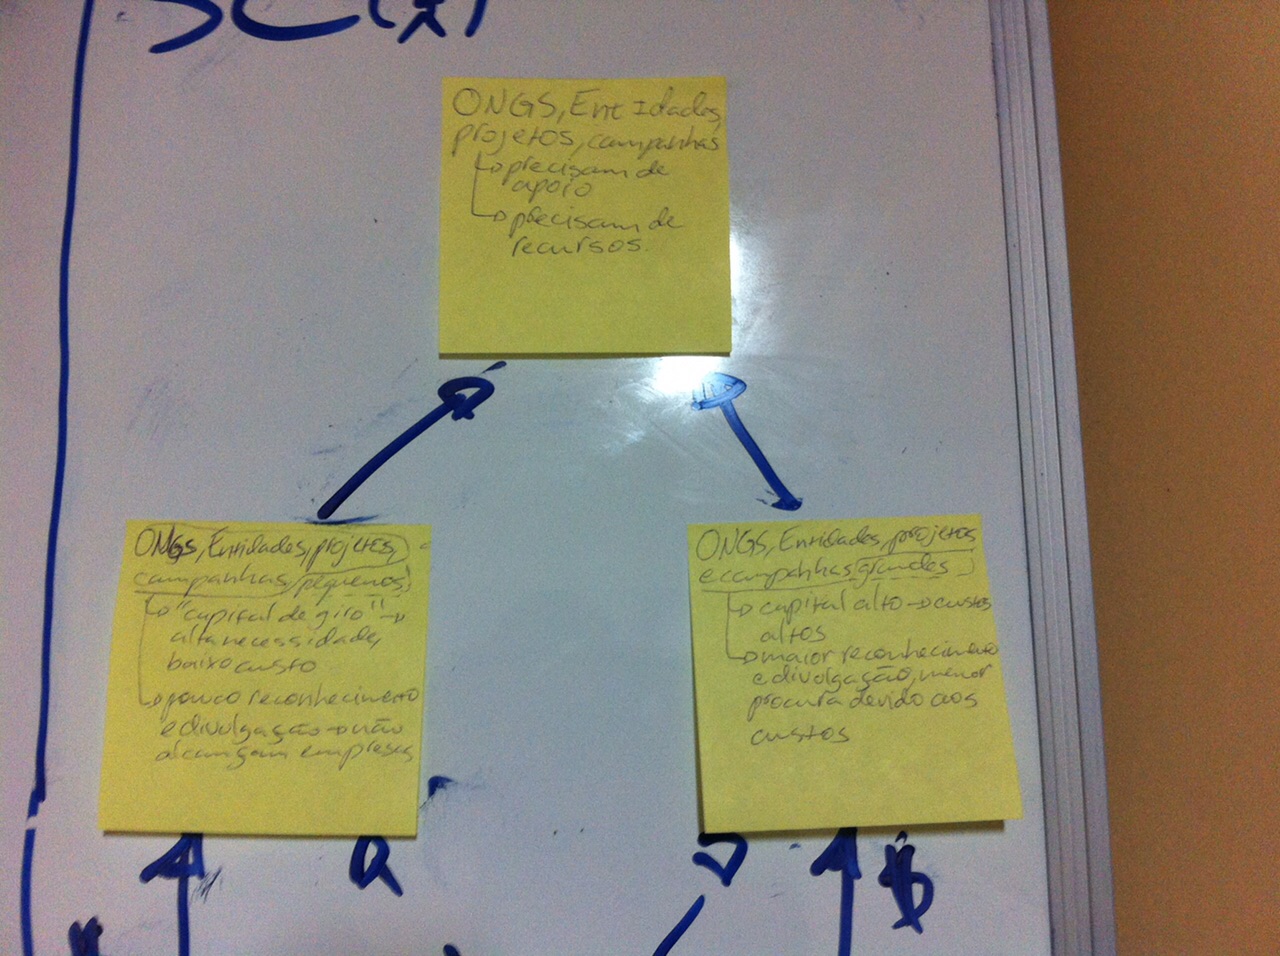 ONGS, Entidades,
projetos, campanhas
precisam de
apoio
precisam de
recursos.
ONGS, Entidades, projetos,
campanhas pequenos
"capital de giro"
alta necessidade,
baixo custo
pouco reconhecimento
e divulgação não
alcançam empresas
ONGS, Entidades, projetos
e campanhas grandes
capital alto custos
altos
maior reconhecimento
e divulgação, menor
procura devido aos
custos
$